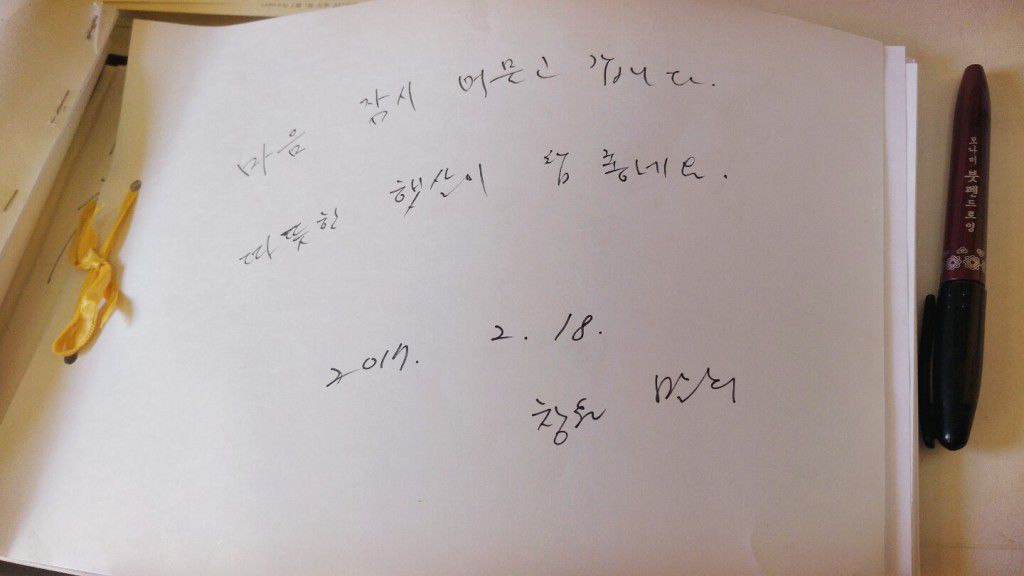 마음 잠시 머문고 갑니다.
따뜻한 햇살이 참 좋네요.
2017. 2. 18.
모나미 붓펜드로잉